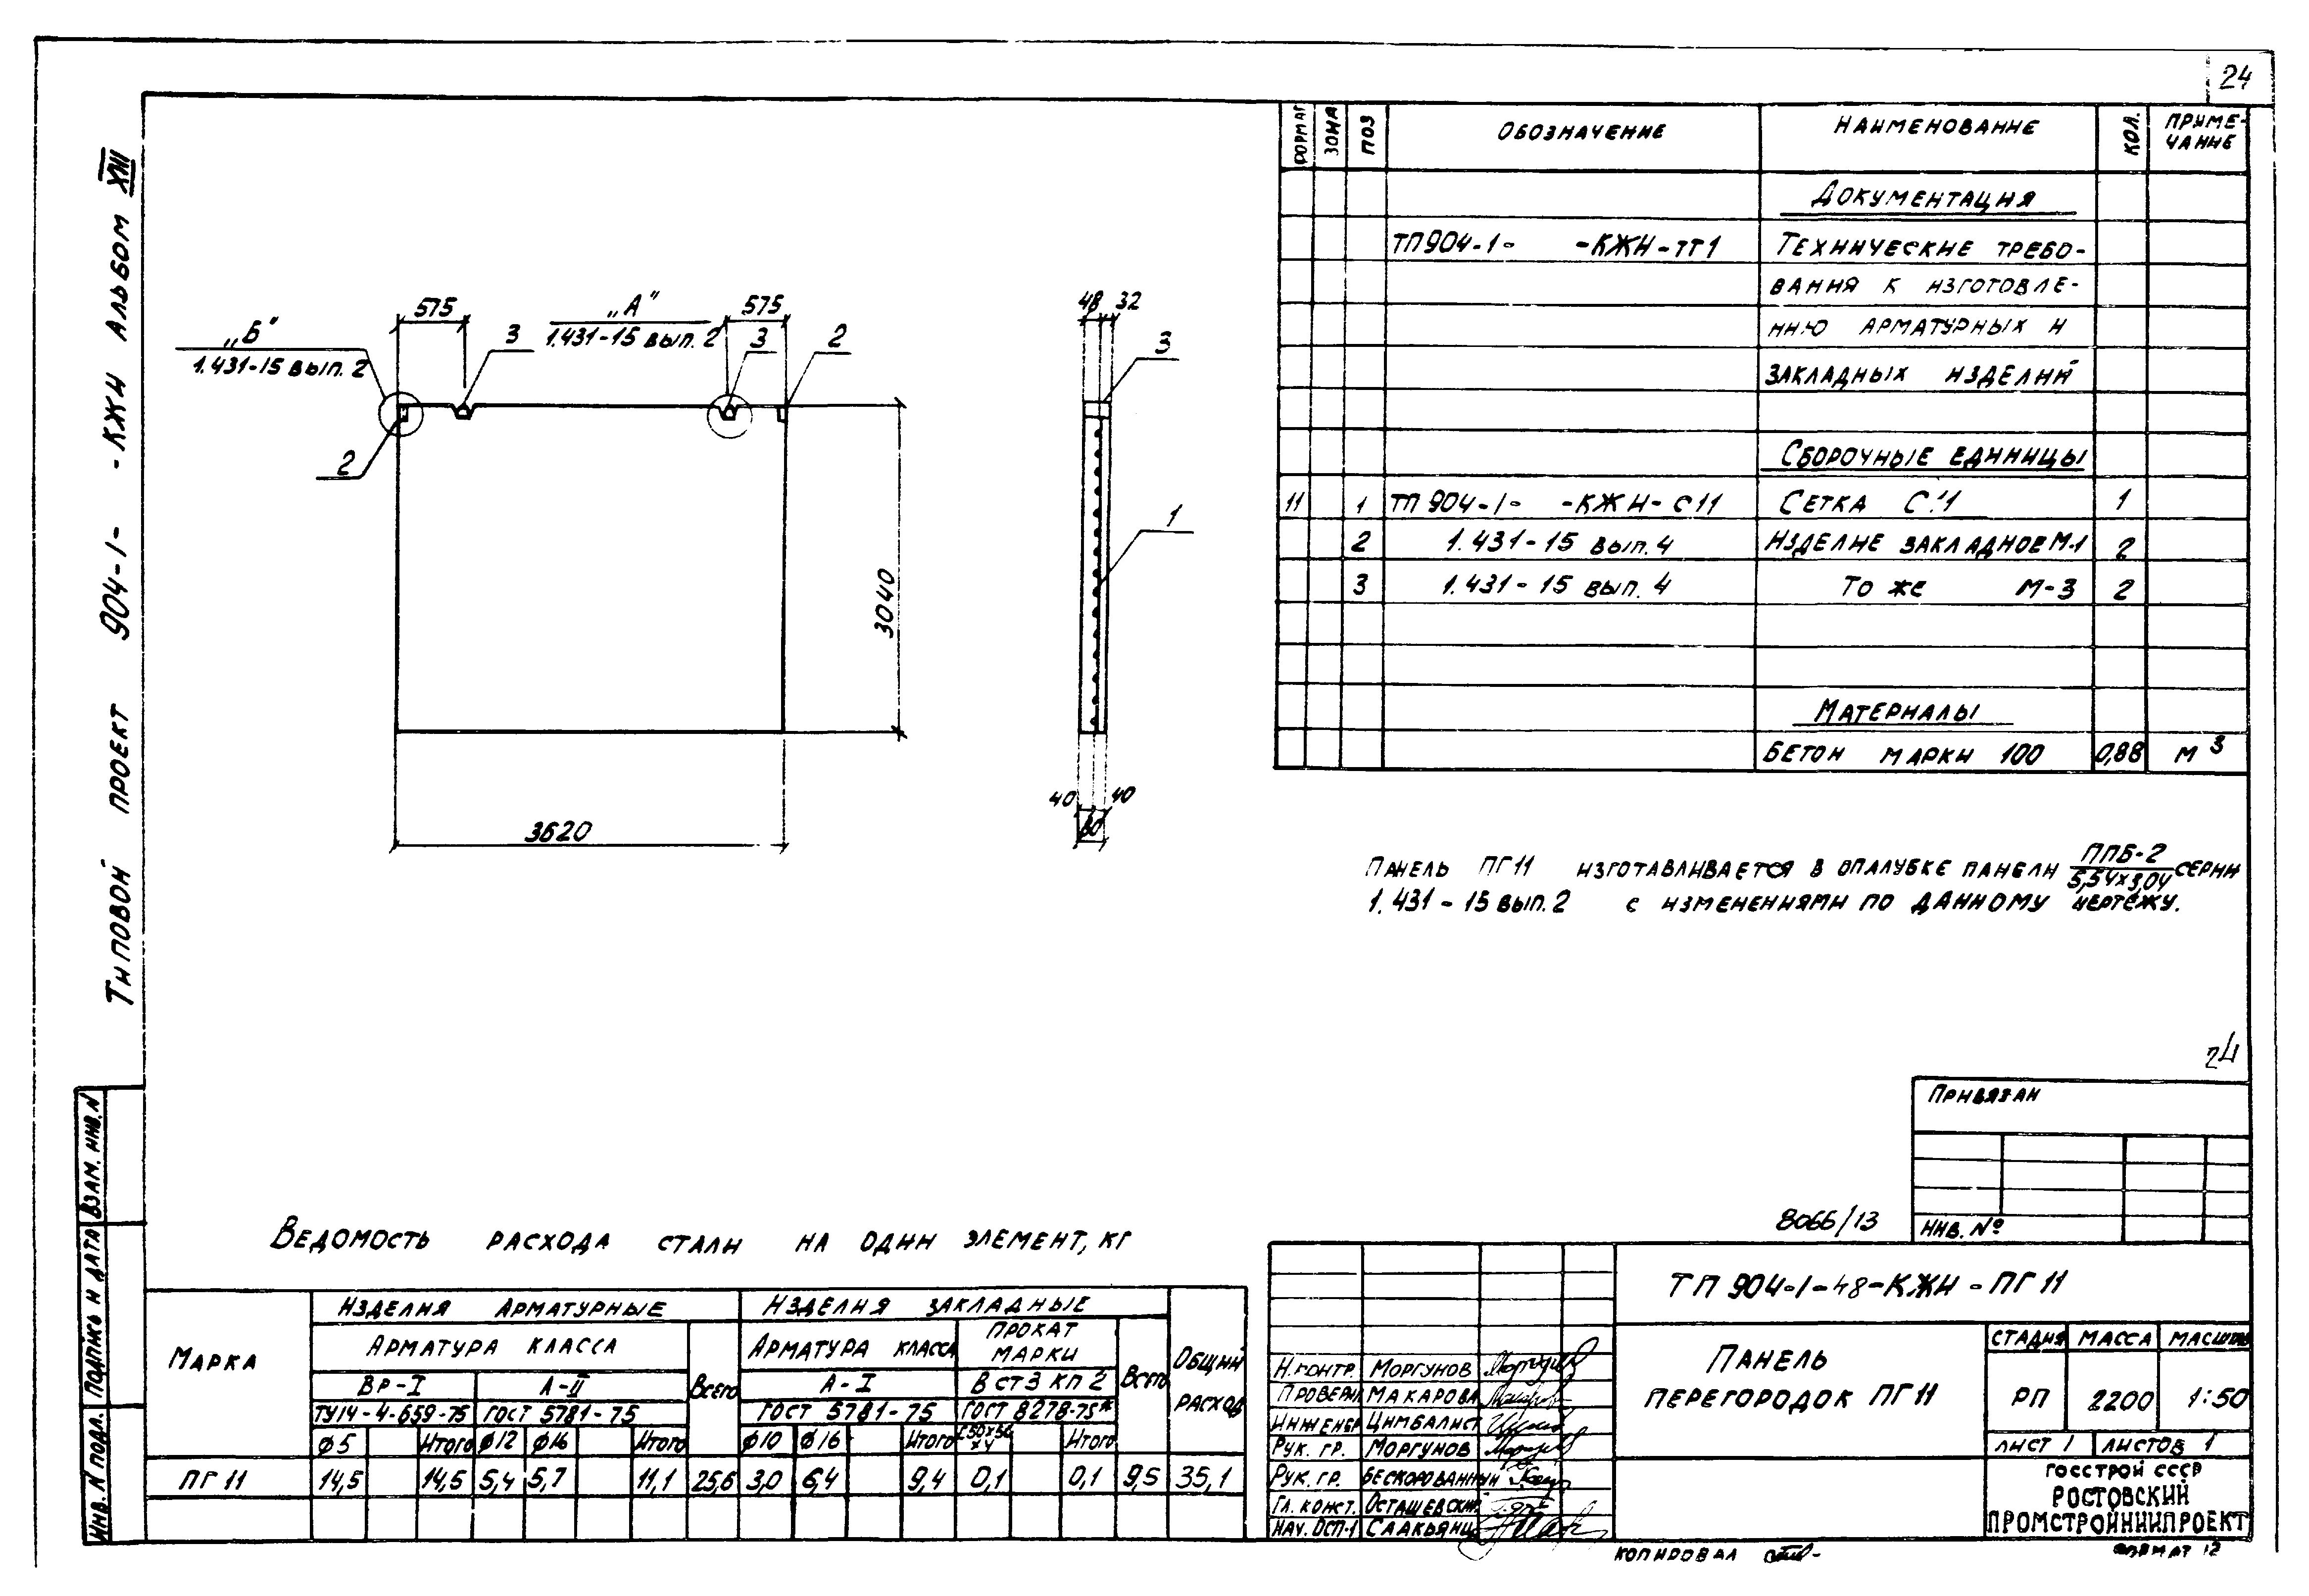 24
Типовой проект 904-1- -КЖИ Альбом XIII
ФОРМАТ ЗОНА ПОЗ ОБОЗНАЧЕНИЕ НАИМЕНОВАНИЕ КОЛ. ПРИМЕ-
ЧАНИЕ
ДОКУМЕНТАЦИЯ
ТП904-1- -КЖИ-ТТ1 ТЕХНИЧЕСКИЕ ТРЕБО-
ВАНИЯ К ИЗГОТОВЛЕ-
НИЮ АРМАТУРНЫХ И
ЗАКЛАДНЫХ ИЗДЕЛИЙ
СБОРОЧНЫЕ ЕДИНИЦЫ
11 1 ТП 904-1- -КЖИ-С11 СЕТКА С11 1
2 1.431-15 вып.4 ИЗДЕЛИЕ ЗАКЛАДНОЕ М-1 2
3 1.431-15 вып.4 ТО ЖЕ М-3 2
МАТЕРИАЛЫ
БЕТОН МАРКИ 100 0,88 М3
575 „А" 575
„Б" 3 1.431-15 вып. 2 3 2
1.431-15 вып. 2
2
3040
3620
48 32
3
1
40 40
80
ПАНЕЛЬ ПГ11 ИЗГОТАВЛИВАЕТСЯ В ОПАЛУБКЕ ПАНЕЛИ ППБ-2 СЕРИИ
5,54х3,04
1.431-15 вып.2 С ИЗМЕНЕНИЯМИ ПО ДАННОМУ ЧЕРТЕЖУ.
24
ПРИВЯЗАН
ИНВ. №
8066/13
ВЕДОМОСТЬ РАСХОДА СТАЛИ НА ОДИН ЭЛЕМЕНТ, КГ
МАРКА ИЗДЕЛИЯ АРМАТУРНЫЕ ИЗДЕЛИЯ ЗАКЛАДНЫЕ ОБЩИЙ
РАСХОД
АРМАТУРА КЛАССА ВСЕГО АРМАТУРА КЛАССА ПРОКАТ
МАРКИ ВСЕГО
ВР-I А-II А-I В СТ3 КП 2
ТУ14-4-659-75 ГОСТ 5781-75 ГОСТ 5781-75 ГОСТ 8278-75*
Ø5 Итого Ø12 Ø16 Итого Ø10 Ø16 Итого Итого
ПГ11 14,5 14,5 5,4 5,7 11,1 25,6 3,0 6,4 9,4 0,1 0,1 9,5 35,1
ТП 904-1-48-КЖИ-ПГ11
Н.КОНТР. МОРГУНОВ
ПРОВЕРИЛ МАКАРОВА
ИНЖЕНЕР ЦИМБАЛИСТ
РУК. ГР. МОРГУНОВ
РУК. ГР. БЕСКОРОВАЙНЫЙ
ГЛ. КОНСТ. ОСТАШЕВСКИЙ
НАЧ. ОСП-1 СААКЬЯНЦ
ПАНЕЛЬ
ПЕРЕГОРОДОК ПГ11
СТАДИЯ МАССА МАСШТАБ
РП 2200 1:50
ЛИСТ 1 ЛИСТОВ 1
ГОССТРОЙ СССР
РОСТОВСКИЙ
ПРОМСТРОЙНИИПРОЕКТ
КОПИРОВАЛ
ФОРМАТ 12
ИНВ. N ПОДЛ. ПОДПИСЬ И ДАТА ВЗАМ. ИНВ. N